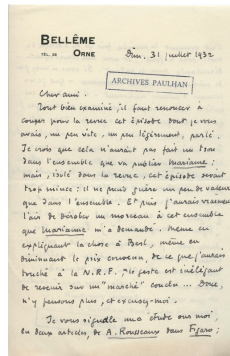 BELLÊME
TÉL. 28 ORNE
Dim. 31 juillet 1932
ARCHIVES PAULHAN
Cher ami.
Tout bien examiné, il faut renoncer à
couper pour la revue cet épisode dont je vous
avais, un peu vite, un peu légèrement, parlé.
Je crois que cela n'aurait pas fait un trou
dans l'ensemble que va publier Marianne;
mais, isolé dans la revue, cet épisode serait
trop mince: il ne prend guère un peu de valeur
que dans l'ensemble. Et puis j'aurais vraiment
l'air de dérober un morceau à cet ensemble
que Marianne m'a demandé. Même en
expliquant la chose à Berl, même en
diminuant le prix convenu de ce que j'aurais
touché à la N.R.F. le geste est inélégant
de revenir sur un "marché" conclu... Donc,
n'y pensons plus, et excusez-moi.
Je vous signale une étude sur moi,
en deux articles, de A. Rousseaux dans Figaro;